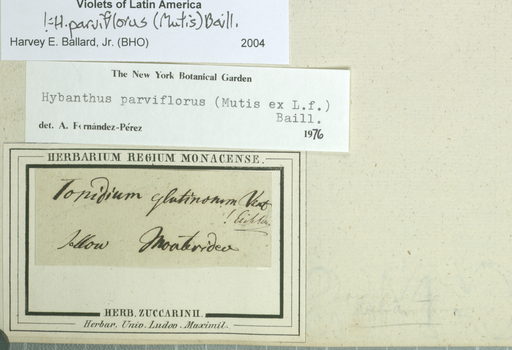 Violets of Latin America
!=H. parviflorus (Mutis) Baill.
Harvey E. Ballard, Jr. (BHO) 2004
The New York Botanical Garden
Hybanthus parviflorus (Mutis ex L.f.)
Baill.
det. A. Fernández-Pérez
1976
HERBARIUM REGIUM MONACENSE.
Ionidium glutinosum Vent
Sellow Montevideo
HERB. ZUCCARINII.
Herbar. Univ. Ludov. Maximil.